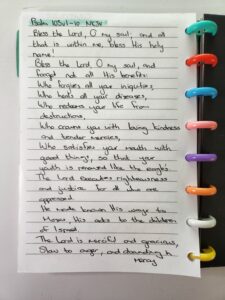 Psalm 103v1-10 NKJV
Bless the Lord, O my soul; and all
that is within me, bless His holy
name!
Bless the Lord, O my soul, and
forget not all His benefits:
Who forgives all your iniquities,
Who heals all your diseases,
Who redeems your life from
destructions,
Who crowns you with loving kindness
and tender mercies,
Who satisfies your mouth with
good things, so that your
youth is renewed like the eagle's
The Lord executes righteousness
and justice for all who are
oppressed
He made known His ways to
Moses, His acts to the children
of Israel.
The Lord is merciful and gracious,
Slow to anger, and abounding in
Mercy